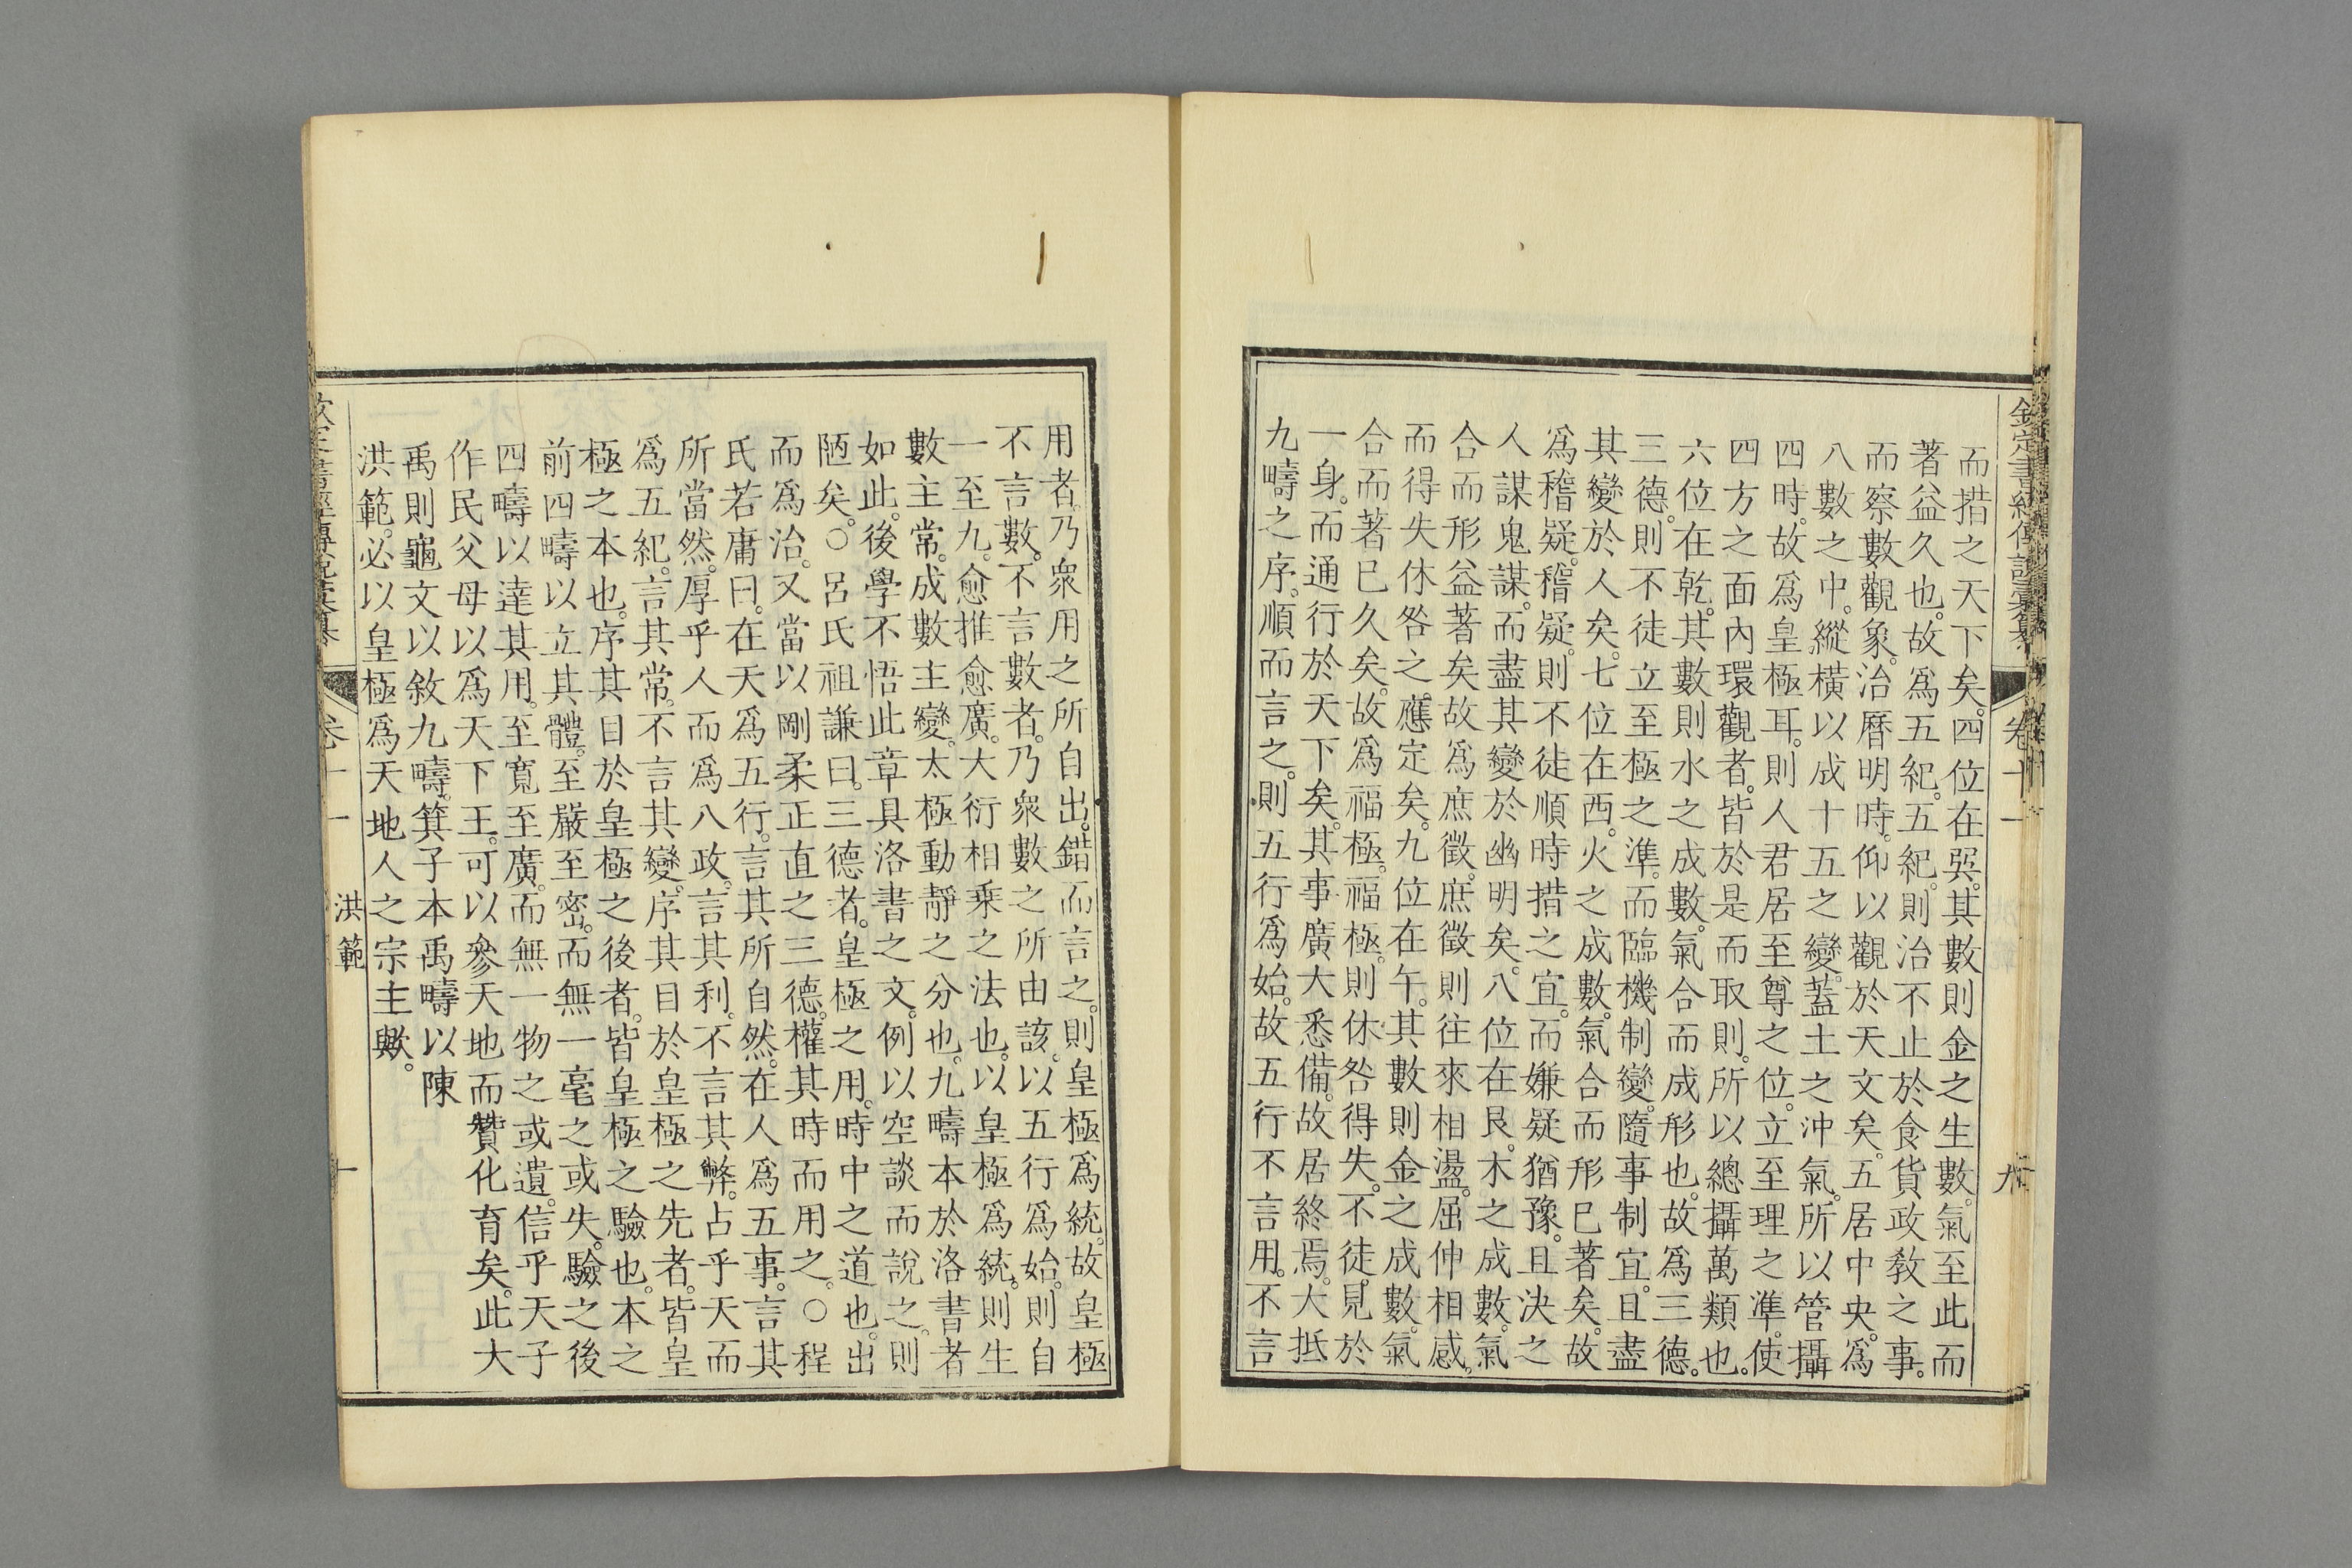 欽定書經傳說彙纂 卷十一 九
而措之天下矣。四位在巽。其數則金之生數。氣至此而
著益久也。故爲五紀。五紀。則治不止於食貨政敎之事。
而察數觀象。治曆明時。仰以觀於天文矣。五居中央。爲
八數之中。縱橫以成十五之變。蓋土之沖氣。所以管攝
四時。故爲皇極耳。則人君居至尊之位。立至理之準。使
四方之面內環觀者。皆於是而取則。所以總攝萬類也。
六位在乾。其數則水之成數。氣合而成形也。故爲三德。
三德。則不徒立至極之準。而臨機制變。隨事制宜。且盡
其變於人矣。七位在西。火之成數。氣合而形已著矣。故
爲稽疑。稽疑。則不徒順時措之宜。而嫌疑猶豫。且決之
人謀鬼謀。而盡其變於幽明矣。八位在艮。木之成數。氣
合而形益著矣故爲庶徵。庶徵則往來相盪。屈伸相感。
而得失休咎之應定矣。九位在午。其數則金之成數。氣
合而著已久矣。故爲福極。福極。則休咎得失。不徒見於
一身。而通行於天下矣。其事廣大悉備。故居終焉。大抵
九疇之序。順而言之。則五行爲始。故五行不言用。不言
用者。乃衆用之所自出。錯而言之。則皇極爲統。故皇極
不言數。不言數者。乃衆數之所由該。以五行爲始。則自
一至九。愈推愈廣。大衍相乘之法也。以皇極爲統。則生
數主常。成數主變。太極動靜之分也。九疇本於洛書者
如此。後學不悟此章具洛書之文。例以空談而說之。則
陋矣。○呂氏祖謙曰。三德者。皇極之用。時中之道也。出
而爲治。又當以剛柔正直之三德。權其時而用之。○程
氏若庸曰。在天爲五行。言其所自然。在人爲五事。言其
所當然。厚乎人而爲八政。言其利。不言其弊。占乎天而
爲五紀。言其常。不言其變。序其目於皇極之先者。皆皇
極之本也。序其目於皇極之後者。皆皇極之驗也。本之
前四疇以立其體。至嚴至密。而無一毫之或失。驗之後
四疇以達其用。至寬至廣。而無一物之或遺。信乎天子
作民父母以爲天下王。可以參天地而贊化育矣。此大
禹則龜文以敘九疇。箕子本禹疇以陳
洪範。必以皇極爲天地人之宗主歟。
欽定書經傳說彙纂 卷十一 洪範